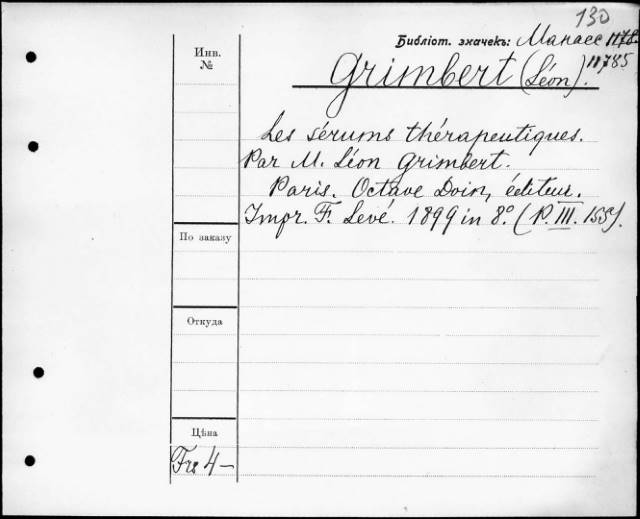 130
Библіот. значекъ: Манасс 1178.
11785
Инв.
№
Grimbert (Léon).
Les sérums thérapeutiques.
Par M. Léon Grimbert.
Paris. Octave Doin, éditeur.
Impr. F. Levé. 1899 in 8º. (P. III. 155).
По заказу
Откуда
Цѣна
Frs 4 —